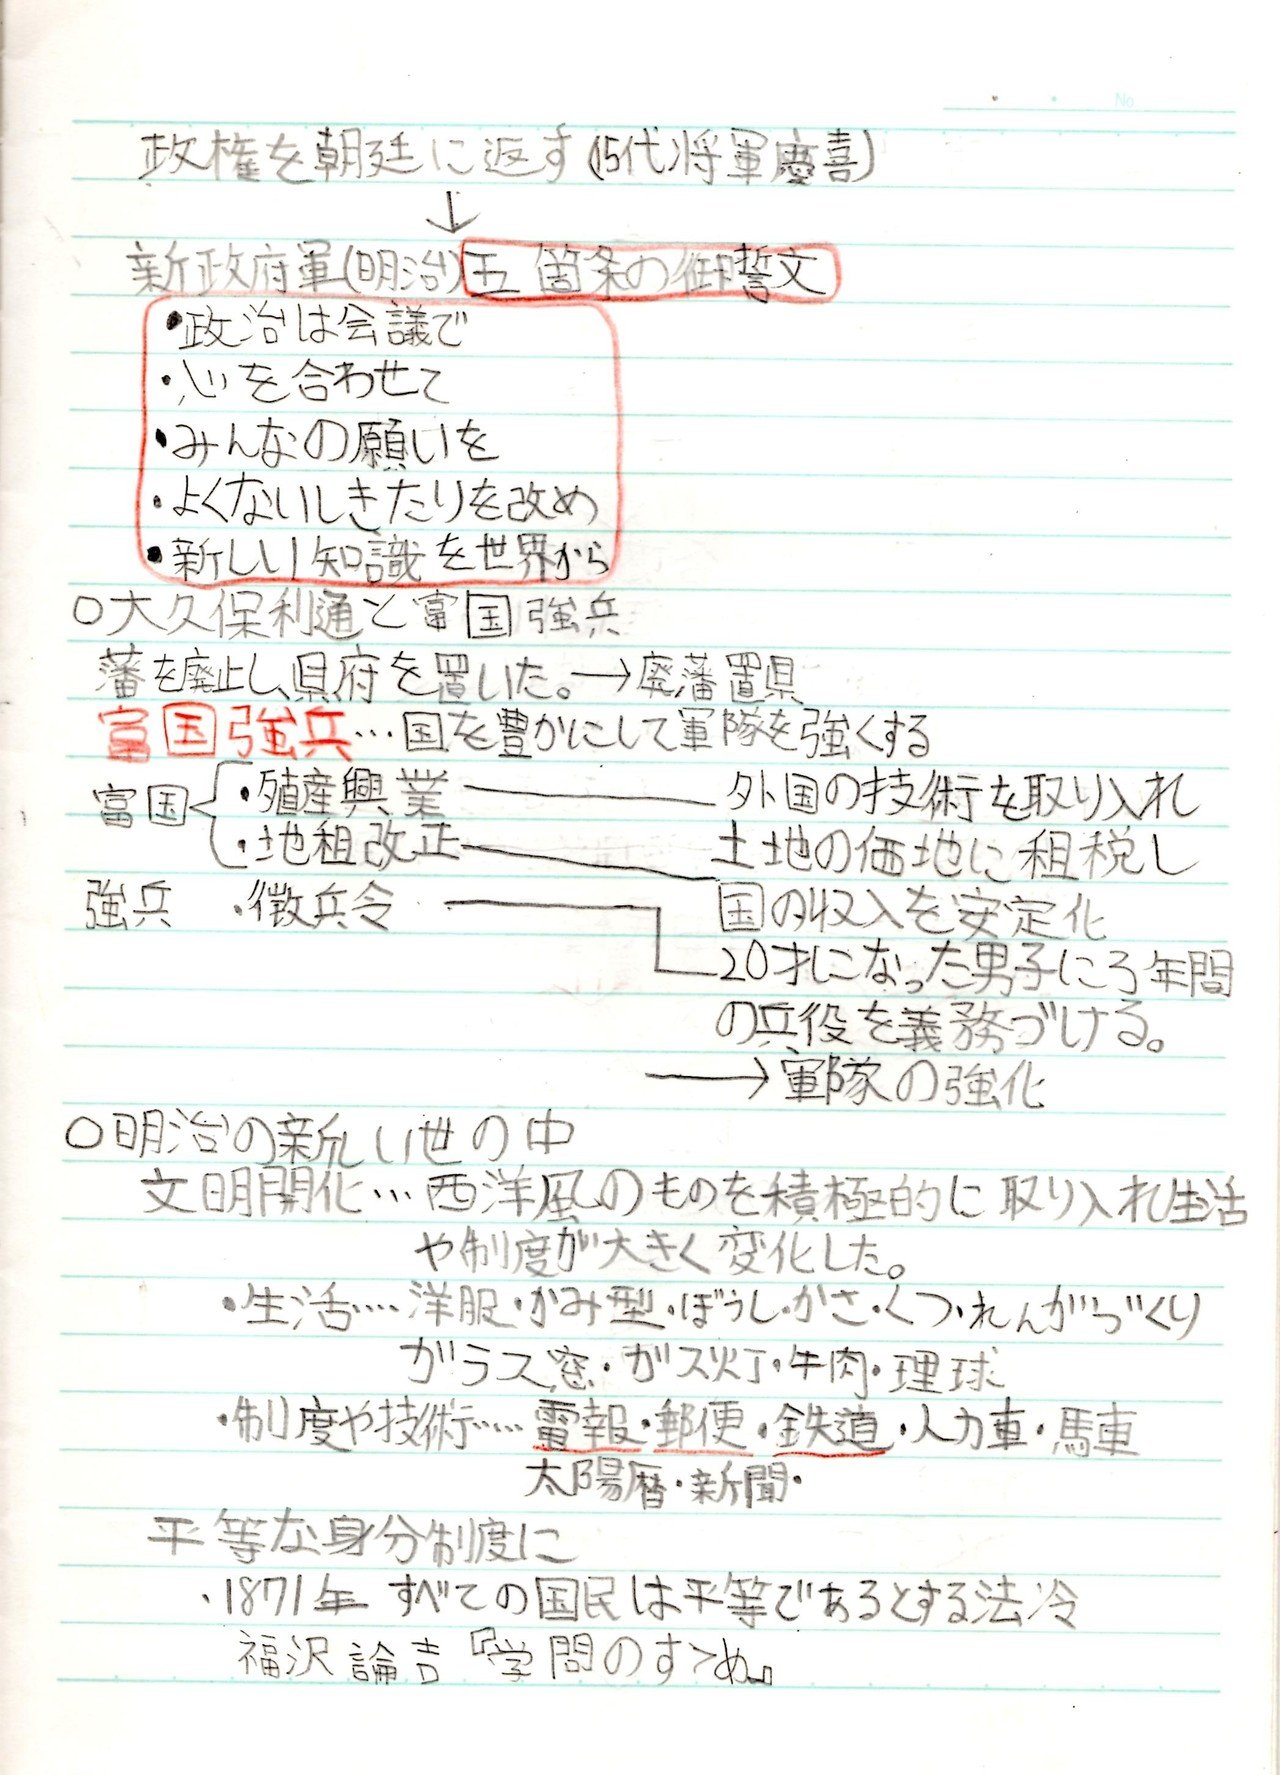 No.
政権を朝廷に返す(15代将軍慶喜)
↓
新政府軍(明治)五箇条の御誓文
・政治は会議で
・心を合わせて
・みんなの願いを
・よくないしきたりを改め
・新しい知識を世界から
○大久保利通と富国強兵
藩を廃止し、県府を置いた。→廃藩置県
富国強兵…国を豊かにして軍隊を強くする
富国 ・殖産興業 外国の技術を取り入れ
・地租改正 土地の価地に租税し
強兵 ・徴兵令 国の収入を安定化
20才になった男子に3年間
の兵役を義務づける。
→軍隊の強化
○明治の新しい世の中
文明開化…西洋風のものを積極的に取り入れ生活
や制度が大きく変化した。
・生活‥‥洋服・かみ型・ぼうし・かさ・くつ・れんがづくり
ガラス窓・ガス灯・牛肉・理球
・制度や技術‥‥電報・郵便・鉄道・人力車・馬車
太陽暦・新聞・
平等な身分制度に
・1871年 すべての国民は平等であるとする法冷
福沢論吉『学問のすゝめ』